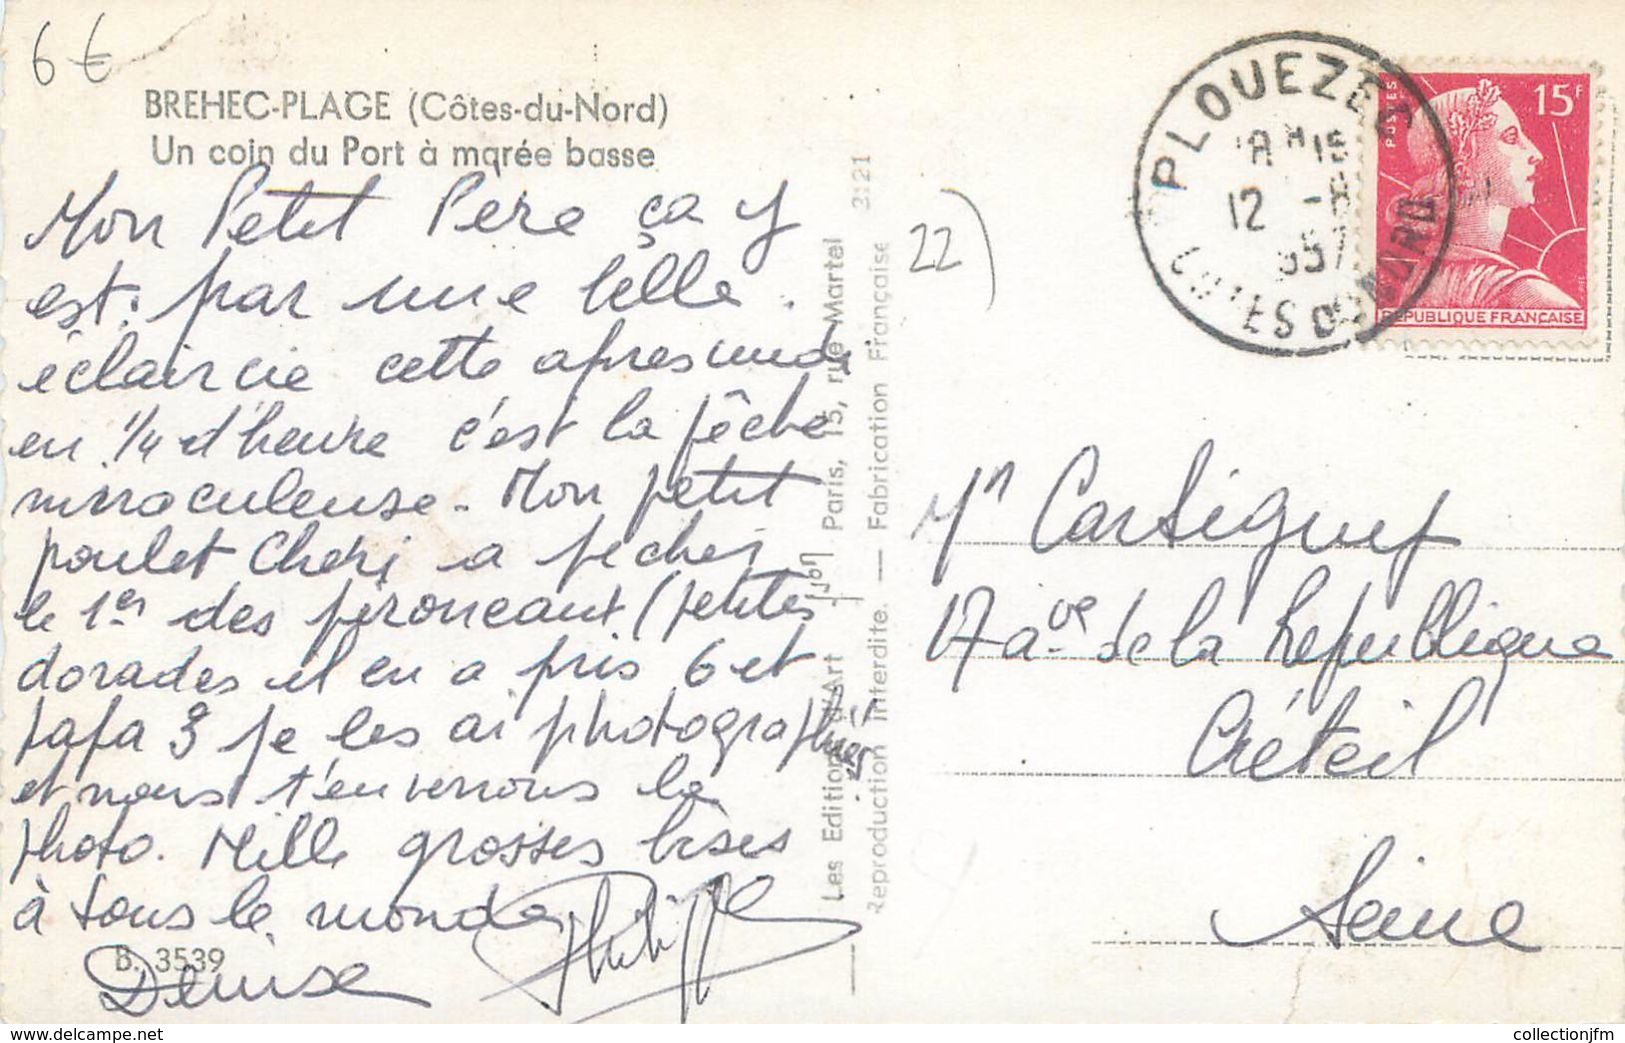 6€
BREHEC-PLAGE (Côtes-du-Nord)
Un coin du Port à marée basse
Mon Petit Père ça y
est: par une belle
éclaircie cette apres midi
en 1/4 d'heure c'est la pêche
miraculeuse. Mon petit
poulet Cheri a pecher
le 1er des (petites
dorades il en a pris 6 et
papa 3 je les ai photographiés
et nous t'enverrons la
photo. Mille grosses bises
à tous le monde
Denise Philippe
B. 3539
Les Editions d'Art Yvon Paris, 15, rue Martel
Reproduction interdite. — Fabrication Française 2121
22)
PLOUEZEC
12 -
COTES DU NORD
POSTES
15F
REPUBLIQUE FRANÇAISE
Mr
17 ave de la Republique
Créteil
Seine
collectionjfm